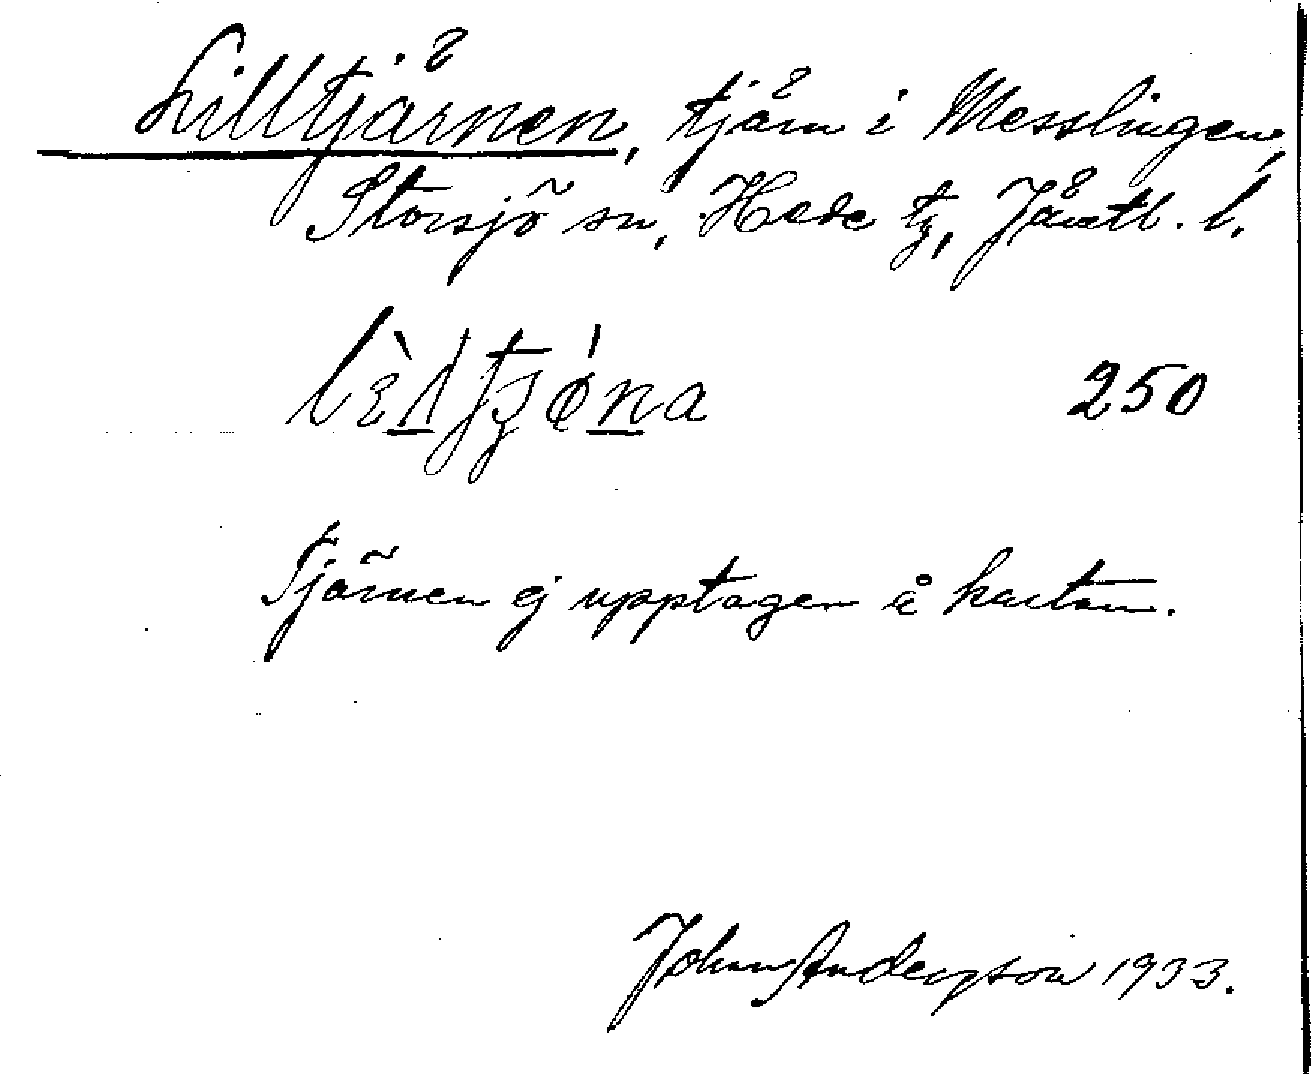 Lilltjärnen, tjärn i Messlingen,
Storsjö sn, Hede tg, Jämtl. l.
250
Tjärnen ej upptagen å kartan.
Johan Andersson 1933.